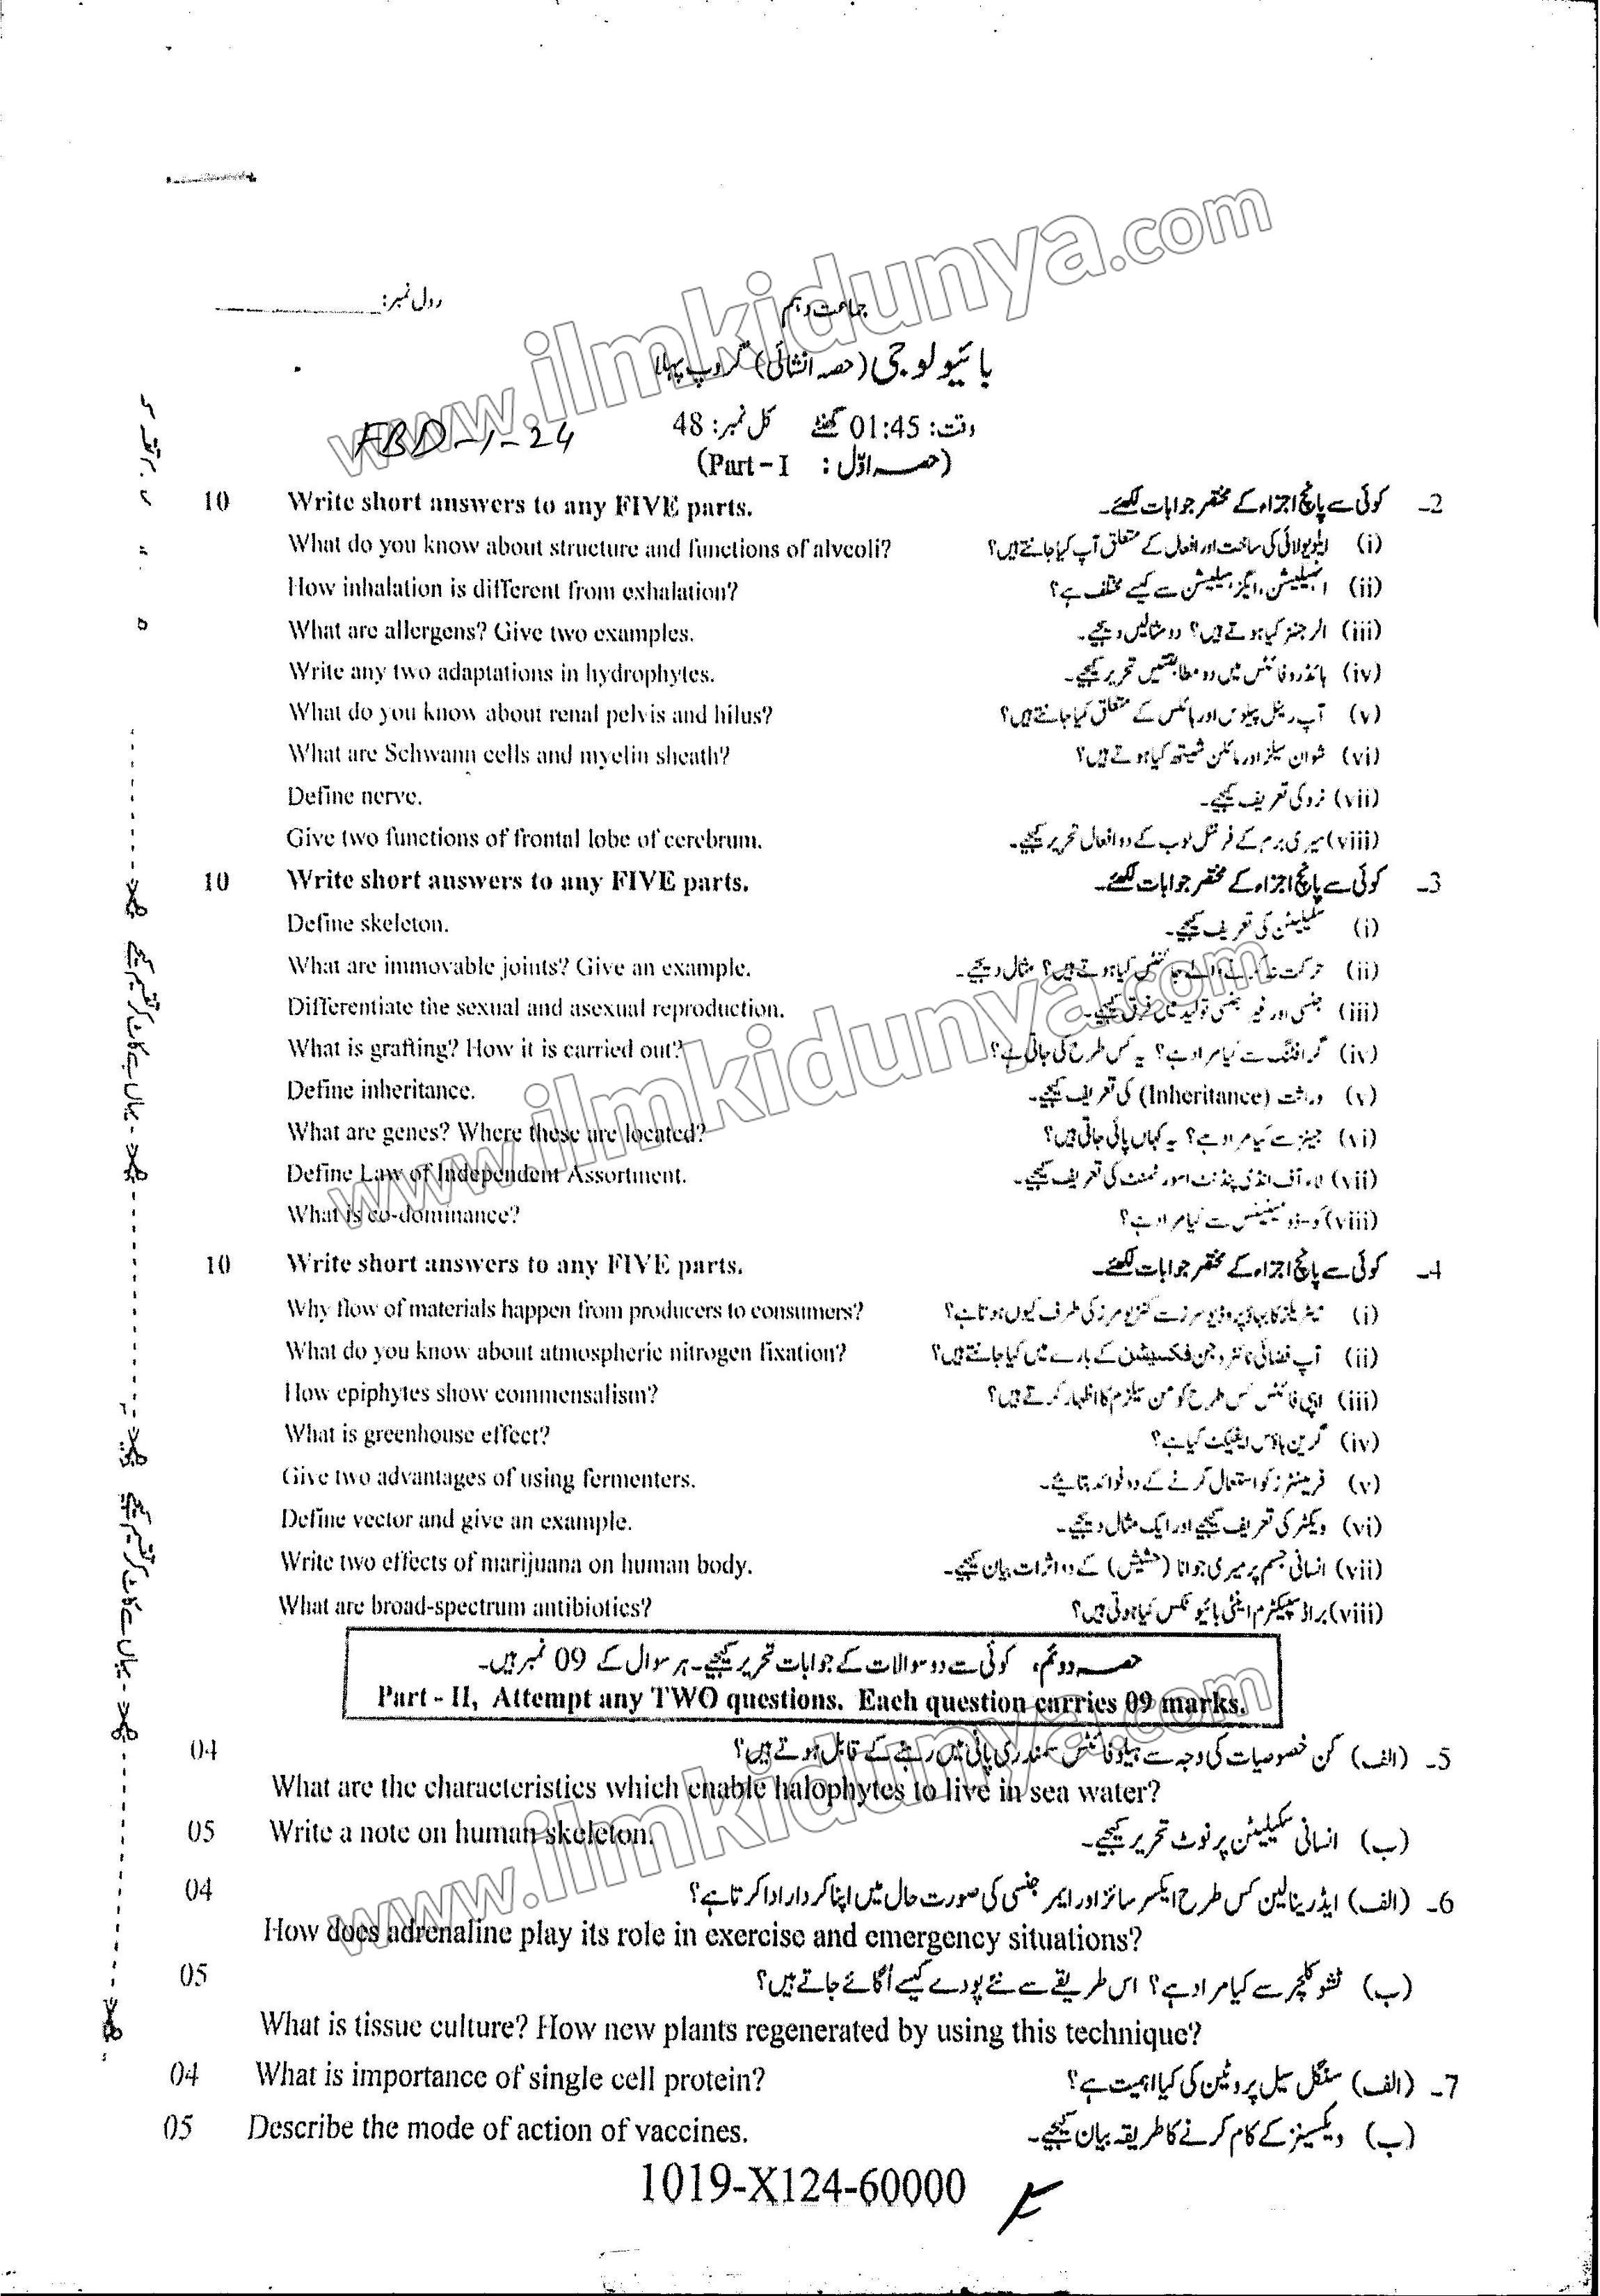 www.ilmkidunya.com
رول نمبر:
جماعت دہم
بائیولوجی (حصہ انشائی) گروپ پہلا
وقت: 01:45 گھنٹے کل نمبر: 48
FBD-1-24
(حصہ اوّل : Part-I)
10 Write short answers to any FIVE parts. کوئی سے پانچ اجزاء کے مختصر جوابات لکھئے۔ 2-
What do you know about structure and functions of alveoli? (i) ایلویولائی کی ساخت اور افعال کے متعلق آپ کیا جانتے ہیں؟
How inhalation is different from exhalation? (ii) انہیلیشن، ایگزہیلیشن سے کیسے مختلف ہے؟
What are allergens? Give two examples. (iii) الرجنز کیا ہوتے ہیں؟ دو مثالیں دیجیے۔
Write any two adaptations in hydrophytes. (iv) ہائڈروفائٹس میں دو مطابقتیں تحریر کیجیے۔
What do you know about renal pelvis and hilus? (v) آپ رینل پیلوس اور ہائلس کے متعلق کیا جانتے ہیں؟
What are Schwann cells and myelin sheath? (vi) شوان سیلز اور مائلن شیتھ کیا ہوتے ہیں؟
Define nerve. (vii) نرو کی تعریف کیجیے۔
Give two functions of frontal lobe of cerebrum. (viii) سیری برم کے فرنٹل لوب کے دو افعال تحریر کیجیے۔
10 Write short answers to any FIVE parts. کوئی سے پانچ اجزاء کے مختصر جوابات لکھئے۔ 3-
Define skeleton. (i) سکیلیٹن کی تعریف کیجیے۔
What are immovable joints? Give an example. (ii) حرکت نہ کرنے والے جوائنٹس کیا ہوتے ہیں؟ مثال دیجیے۔
Differentiate the sexual and asexual reproduction. (iii) جنسی اور غیر جنسی تولید میں فرق کیجیے۔
What is grafting? How it is carried out? (iv) گرافٹنگ سے کیا مراد ہے؟ یہ کس طرح کی جاتی ہے؟
Define inheritance. (v) وراثت (Inheritance) کی تعریف کیجیے۔
What are genes? Where these are located? (vi) جینز سے کیا مراد ہے؟ یہ کہاں پائی جاتی ہیں؟
Define Law of Independent Assortment. (vii) لاء آف انڈی پنڈنٹ اسورٹمنٹ کی تعریف کیجیے۔
What is co-dominance? (viii) کو-ڈومینینس سے کیا مراد ہے؟
10 Write short answers to any FIVE parts. کوئی سے پانچ اجزاء کے مختصر جوابات لکھئے۔ 4-
Why flow of materials happen from producers to consumers? (i) میٹریلز کا بہاؤ پروڈیوسرز سے کنزیومرز کی طرف کیوں ہوتا ہے؟
What do you know about atmospheric nitrogen fixation? (ii) آپ فضائی نائٹروجن فکسیشن کے بارے میں کیا جانتے ہیں؟
How epiphytes show commensalism? (iii) ایپی فائٹس کس طرح کومن سیلزم کا اظہار کرتے ہیں؟
What is greenhouse effect? (iv) گرین ہاؤس ایفیکٹ کیا ہے؟
Give two advantages of using fermenters. (v) فرمینٹرز کو استعمال کرنے کے دو فوائد بتایئے۔
Define vector and give an example. (vi) ویکٹر کی تعریف کیجیے اور ایک مثال دیجیے۔
Write two effects of marijuana on human body. (vii) انسانی جسم پر میری جوانا (حشیش) کے دو اثرات بیان کیجیے۔
What are broad-spectrum antibiotics? (viii) براڈ سپیکٹرم اینٹی بائیوٹکس کیا ہوتی ہیں؟
حصہ دوئم، کوئی سے دو سوالات کے جوابات تحریر کیجیے۔ ہر سوال کے 09 نمبر ہیں۔
Part - II, Attempt any TWO questions. Each question carries 09 marks.
04 5- (الف) کن خصوصیات کی وجہ سے ہیلوفائٹس سمندری پانی میں رہنے کے قابل ہوتے ہیں؟
What are the characteristics which enable halophytes to live in sea water?
05 Write a note on human skeleton. (ب) انسانی سکیلیٹن پر نوٹ تحریر کیجیے۔
04 6- (الف) ایڈرینالین کس طرح ایکسرسائز اور ایمرجنسی کی صورت حال میں اپنا کردار ادا کرتا ہے؟
How does adrenaline play its role in exercise and emergency situations?
05 (ب) ٹشو کلچر سے کیا مراد ہے؟ اس طریقے سے نئے پودے کیسے اُگائے جاتے ہیں؟
What is tissue culture? How new plants regenerated by using this technique?
04 What is importance of single cell protein? 7- (الف) سنگل سیل پروٹین کی کیا اہمیت ہے؟
05 Describe the mode of action of vaccines. (ب) ویکسینز کے کام کرنے کا طریقہ بیان کیجیے۔
1019-X124-60000
یہاں سے کاٹ کر تقسیم کیجیے
یہاں سے کاٹ کر تقسیم کیجیے
www.ilmkidunya.com
www.ilmkidunya.com